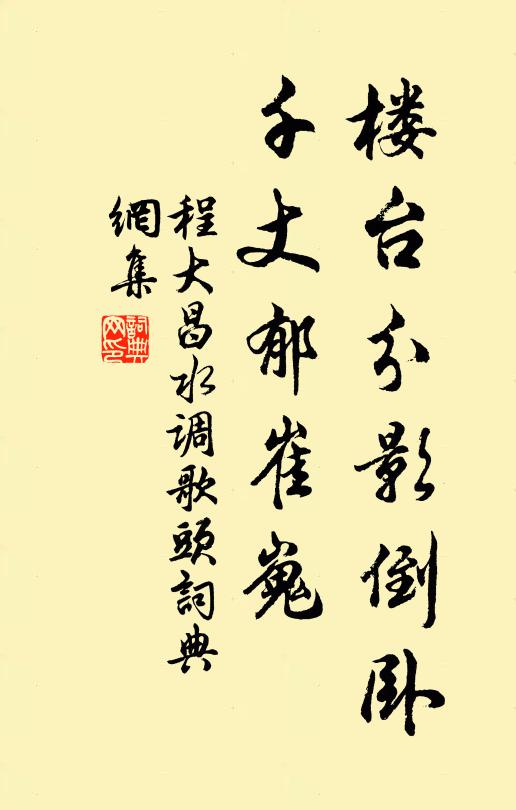 楼台分影倒卧
千丈郁崔嵬
程大昌水调歌頭詞典
網集
詞典
网印